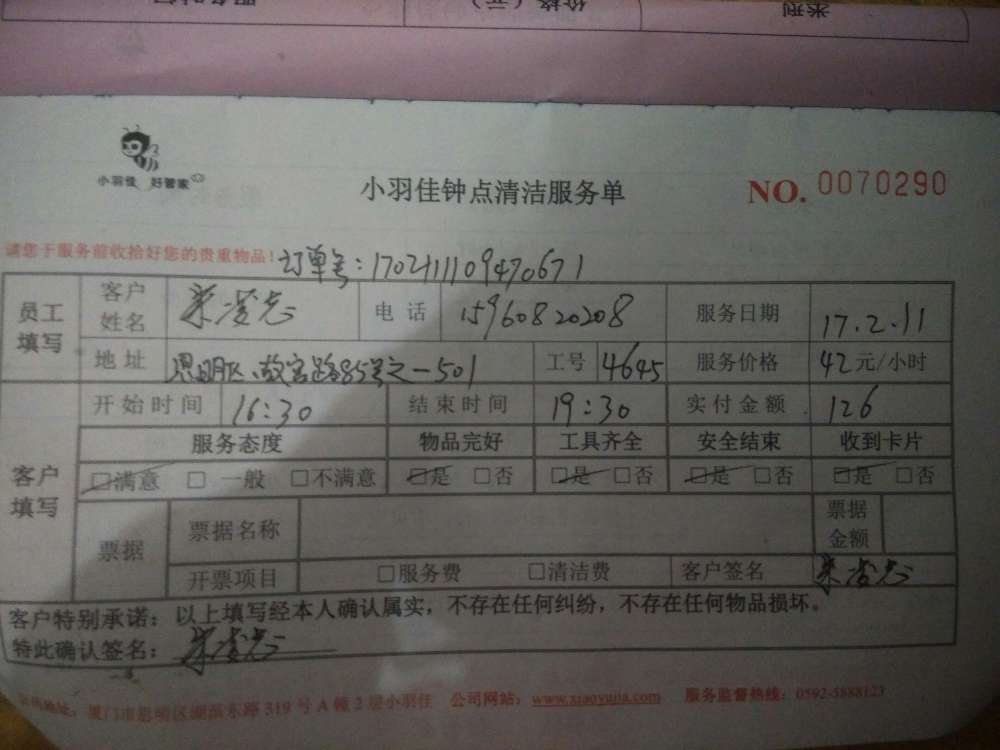 类型 价格（元） 服务时间
小羽佳 好管家
小羽佳钟点清洁服务单
NO. 0070290
请您于服务前收拾好您的贵重物品！订单号：1702111109470671
员工填写 客户姓名 电话 15960820208 服务日期 17.2.11
地址 思明区 85号之一501 工号 4645 服务价格 42元/小时
客户填写 开始时间 16:30 结束时间 19:30 实付金额 126
服务态度 物品完好 工具齐全 安全结束 收到卡片
□满意 □一般 □不满意 □是 □否 □是 □否 □是 □否 □是 □否
票据 票据名称 票据金额
开票项目 □服务费 □清洁费 客户签名
客户特别承诺：以上填写经本人确认属实，不存在任何纠纷，不存在任何物品损坏。
特此确认签名：
地址：厦门市思明区湖滨东路319号A幢2层小羽佳 公司网站：www.xiaoyujia.com 服务监督热线：0592-5888123